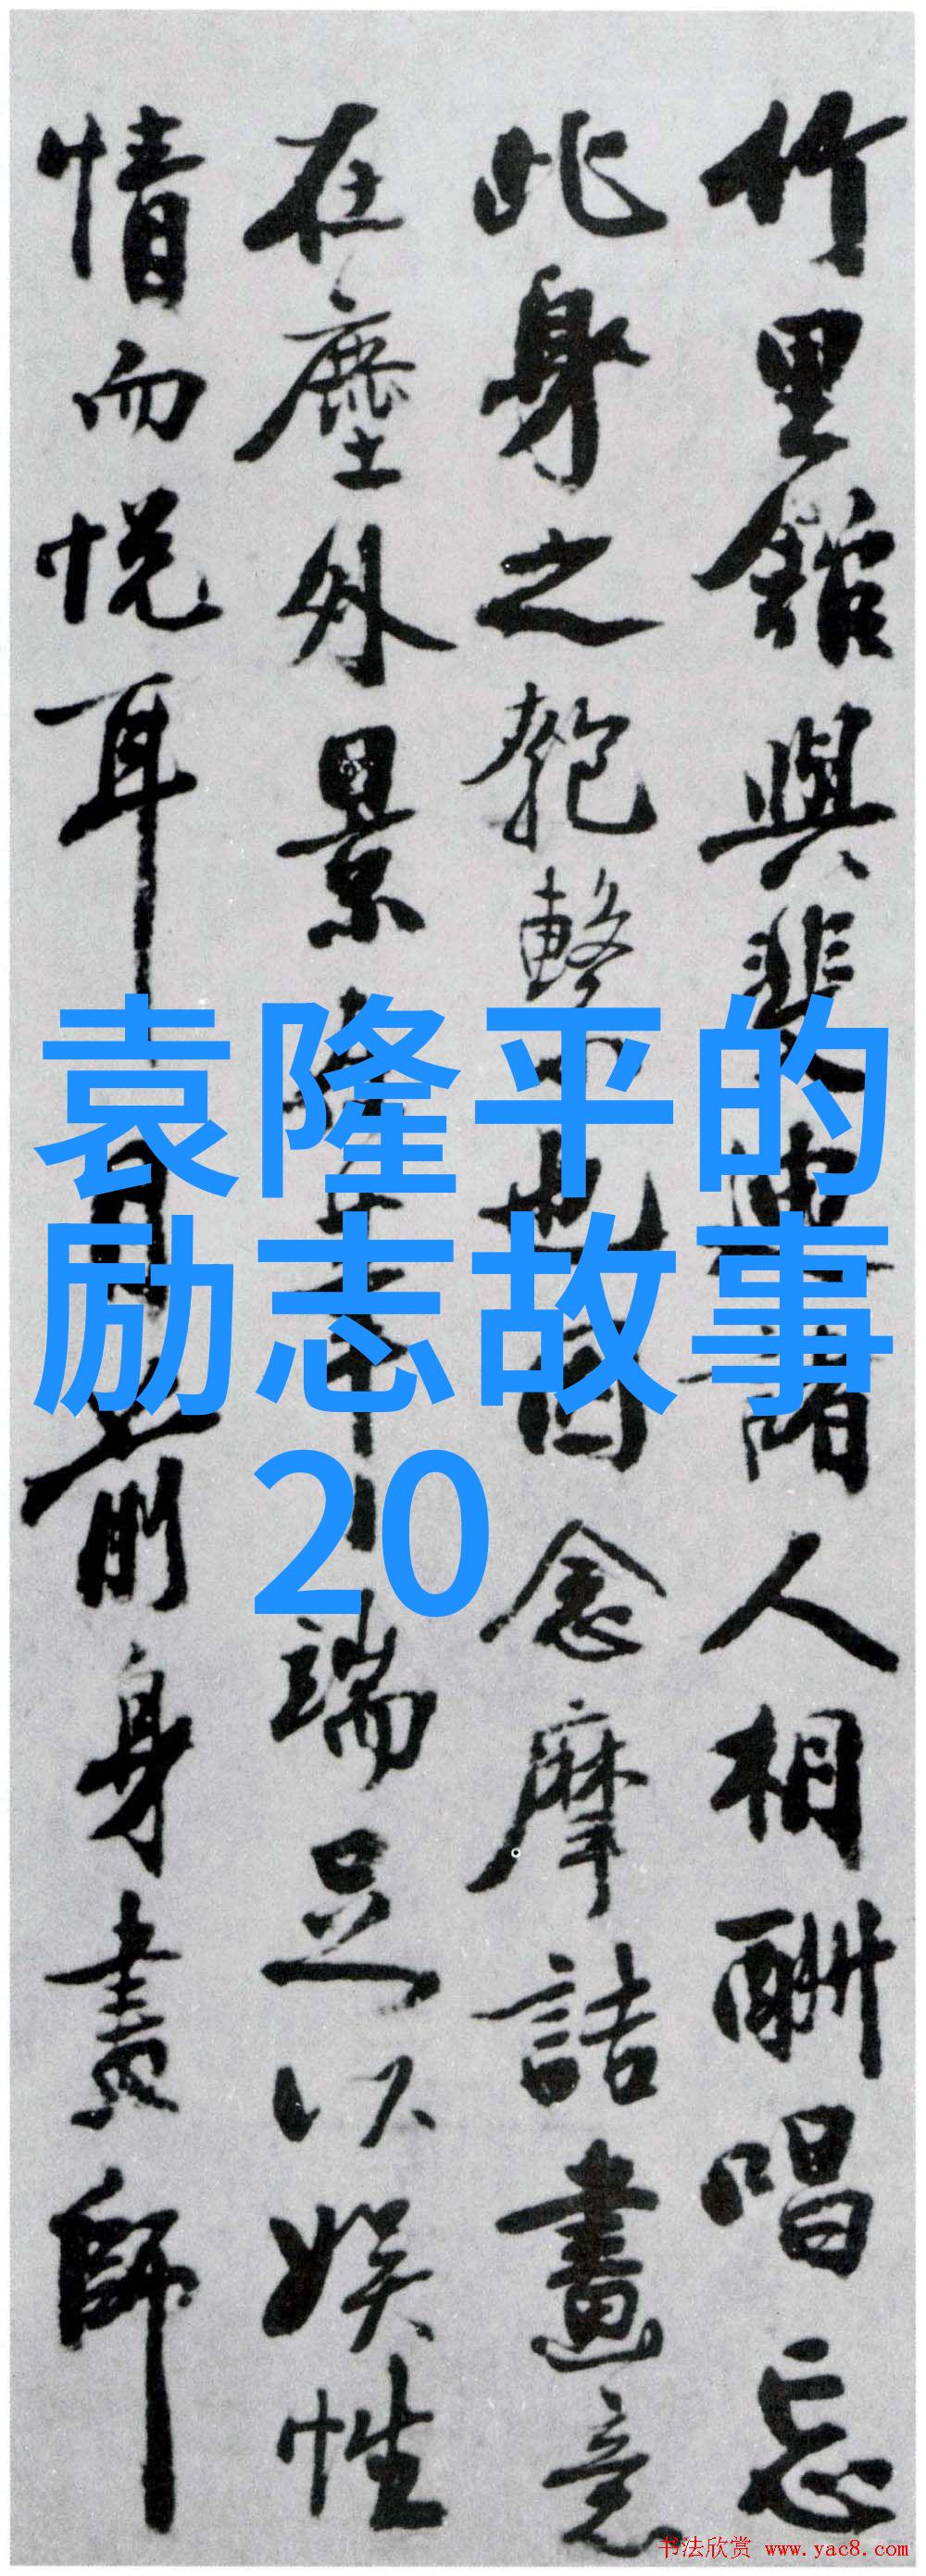 竹里館與裴迪諸人相酬唱忘
此身之匏繫也因念摩詰畫意
在塵外景 端足以娱性
情而悦耳目前身畫師
袁隆平的
励志故事
20
书法欣赏 www.yac8.com